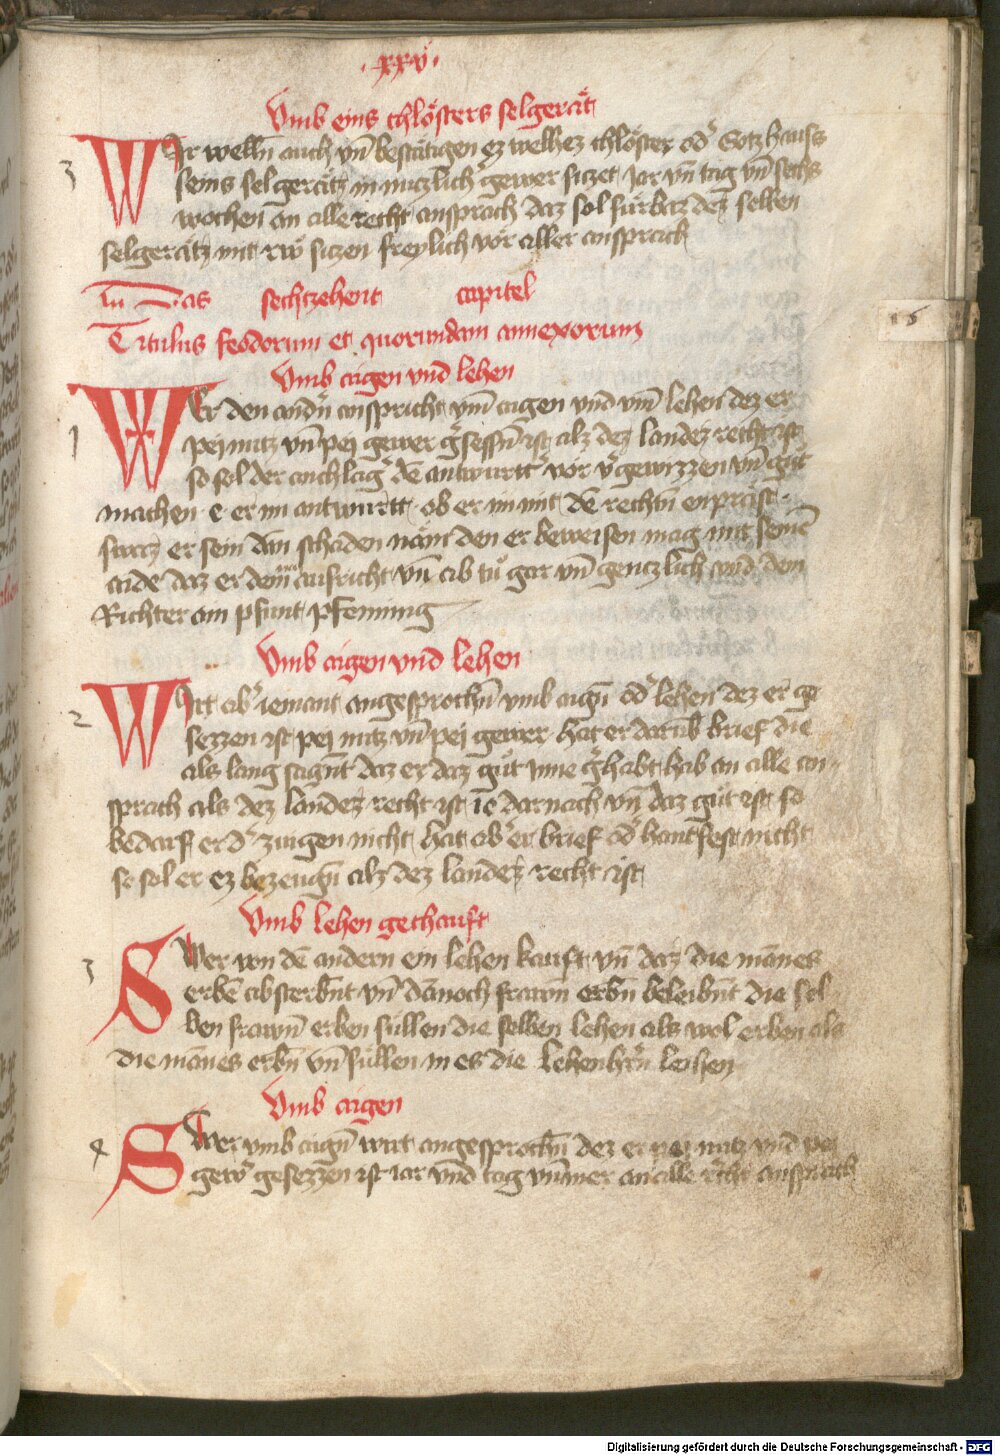 .xxv.
Vmb eins chlösters selgerät
3 WIr welln̄ auch vn̄ bestätigen ez welhez chlöster od' Gotzhauss
seins selgerätz in nutzlich' gewer siczet Jar vn̄ tag vn̄ sechs
wochen an alle recht ansprach daz sol fürbaz dez selben
selgerätz mit rw̆ siczen freylich vor aller ansprach
Das sechtzehent capitel
Titulus feodorum et quorundam annexorum
Vmb aigen vnd lehen
1 WEr den andn̄ anspricht vm̄ aigen vnd vm̄ lehen dez er
pej nutz vn̄ pej gewer g'sessn̄ ist alz dez landez recht ist
so sol der anchlag' dē antwurtt' vor v'gewizzen vn̄ gut
machen e er im antwurtt ob er im mit dē rechtn̄ enpräst
swaz er sein dan̄ schaden näm den er beweisen mag mit seinē
aide daz er dem̄ ausricht vn̄ ab tů gar vn̄ genczlich vnd dem
Richter ain pfunt pfenning
Vmb aigen vnd lehen
2 WIrt ab' iemant angesprochn̄ vmb aign̄ od' lehen dez er ge
sezzen ist pej nutz vn̄ pej gewer hat er darub̄ brief die
als lang sagn̄t daz er daz gůt Inne g'habt hab an alle an
sprach als dez landez recht ist ie darnach vn̄ daz gůt ist so
bedarf er d' zeugen nicht hat ab' er brief od' hantfest nicht
so sol er ez bezeugn̄ alz dez landez recht ist
Vmb lehen gechauft
3 SWer von dē andern ein lehen kauft vn̄ daz die mānes
erbē absterbn̄t vn̄ dānoch frawn̄ erbn̄ beleibn̄t die sel
ben frawn̄ erben süllen die selben lehen als wol erben als
die mānes erbn̄ vn̄ süllen in es die lehenhr̄n leihen
Vmb aigen
4 SWer vmb aign̄ wirt angesprochn̄ dez er pej nutz vnd pej
gew' gesezzen ist iar vnd tag vn̄ mer an alle recht ansprach
Digitalisierung gefördert durch die Deutsche Forschungsgemeinschaft - DFG